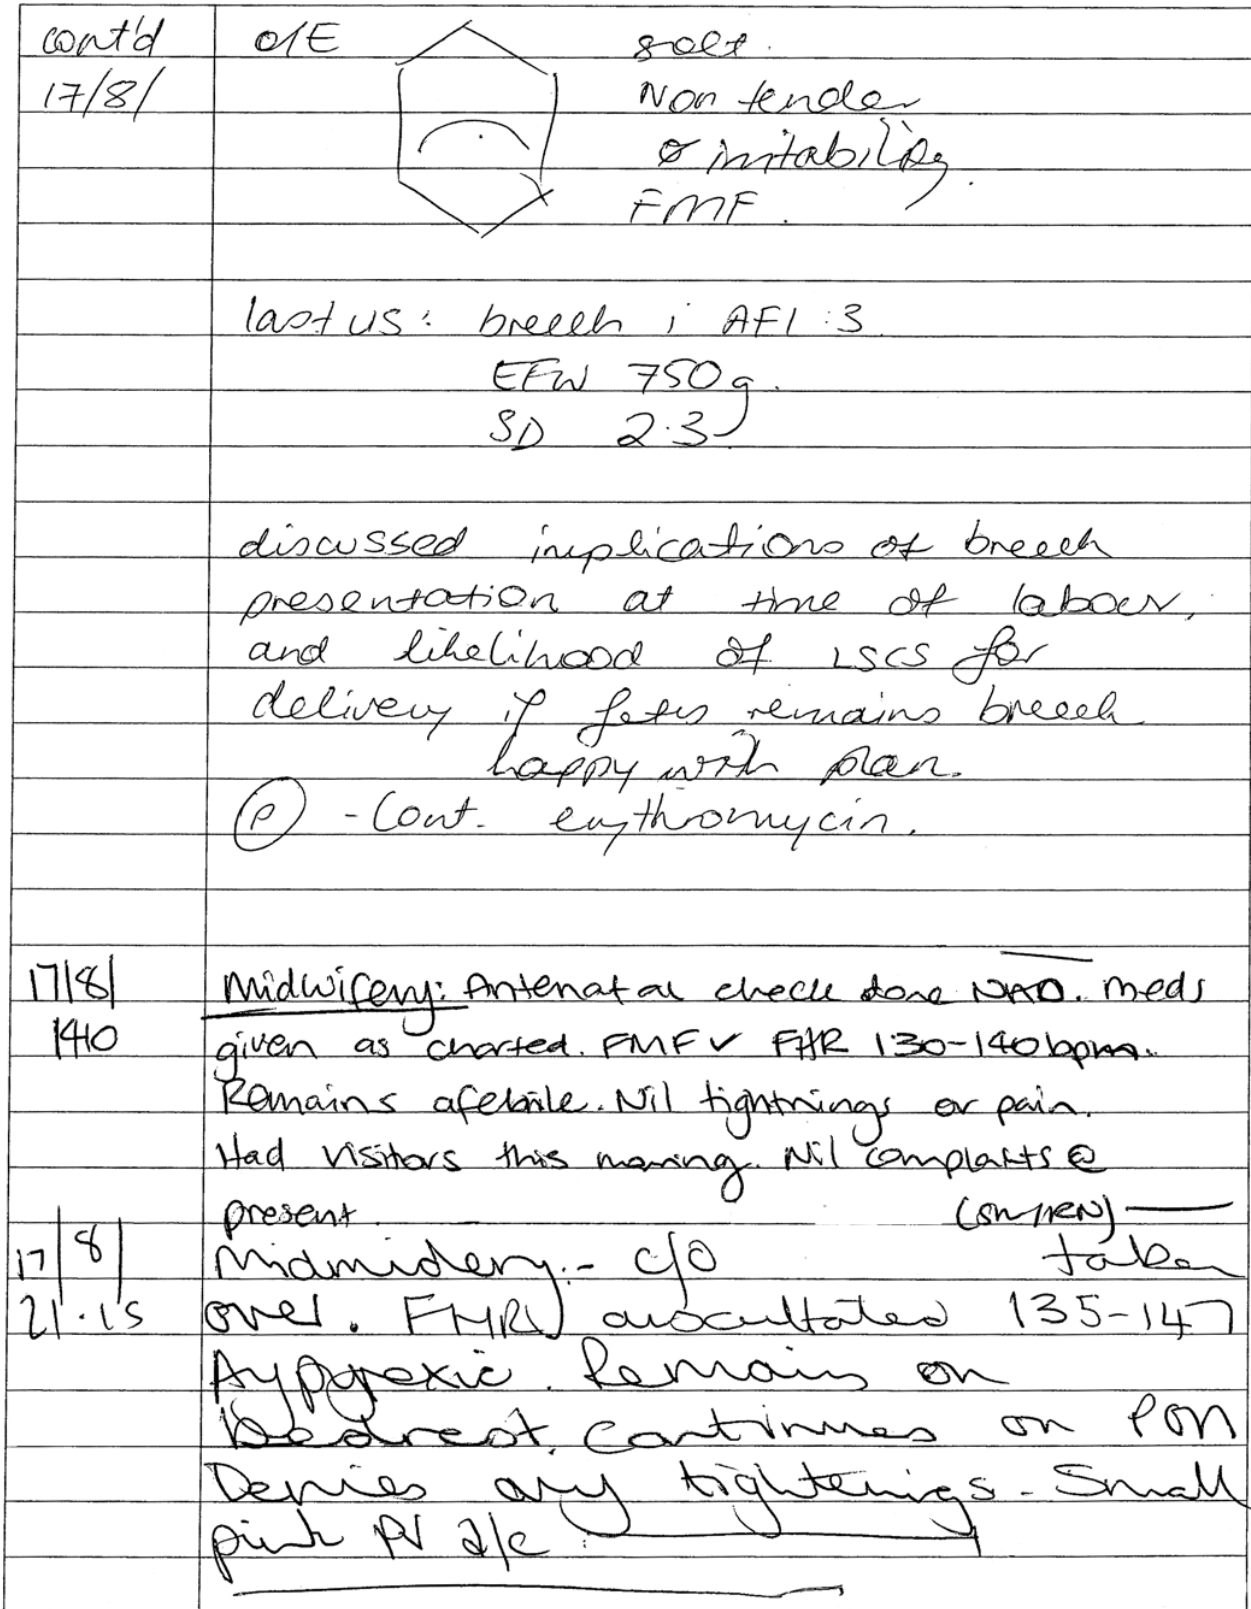 cont'd O/E soft.
17/8/ Non tender
ø irritability.
FMF.
last US: breech ; AFI : 3
EFW 750g.
SD 2.3
discussed implications of breech
presentation at time of labour,
and likelihood of LSCS for
delivery if fetus remains breech
happy with plan.
(P) - Cont. erythromycin.
17/8/ Midwifery: Antenatal check done NAD. Meds
1410 given as charted. FMF ✓ FHR 130-140bpm.
Remains afebrile. Nil tightnings or pain.
Had visitors this morning. Nil complaints @
present
17/8/ c/o taken
21.15 over. FHR auscultated 135-147
Remains on
bedrest. Continues on
Denies any tightenings - Small
pink PV d/c